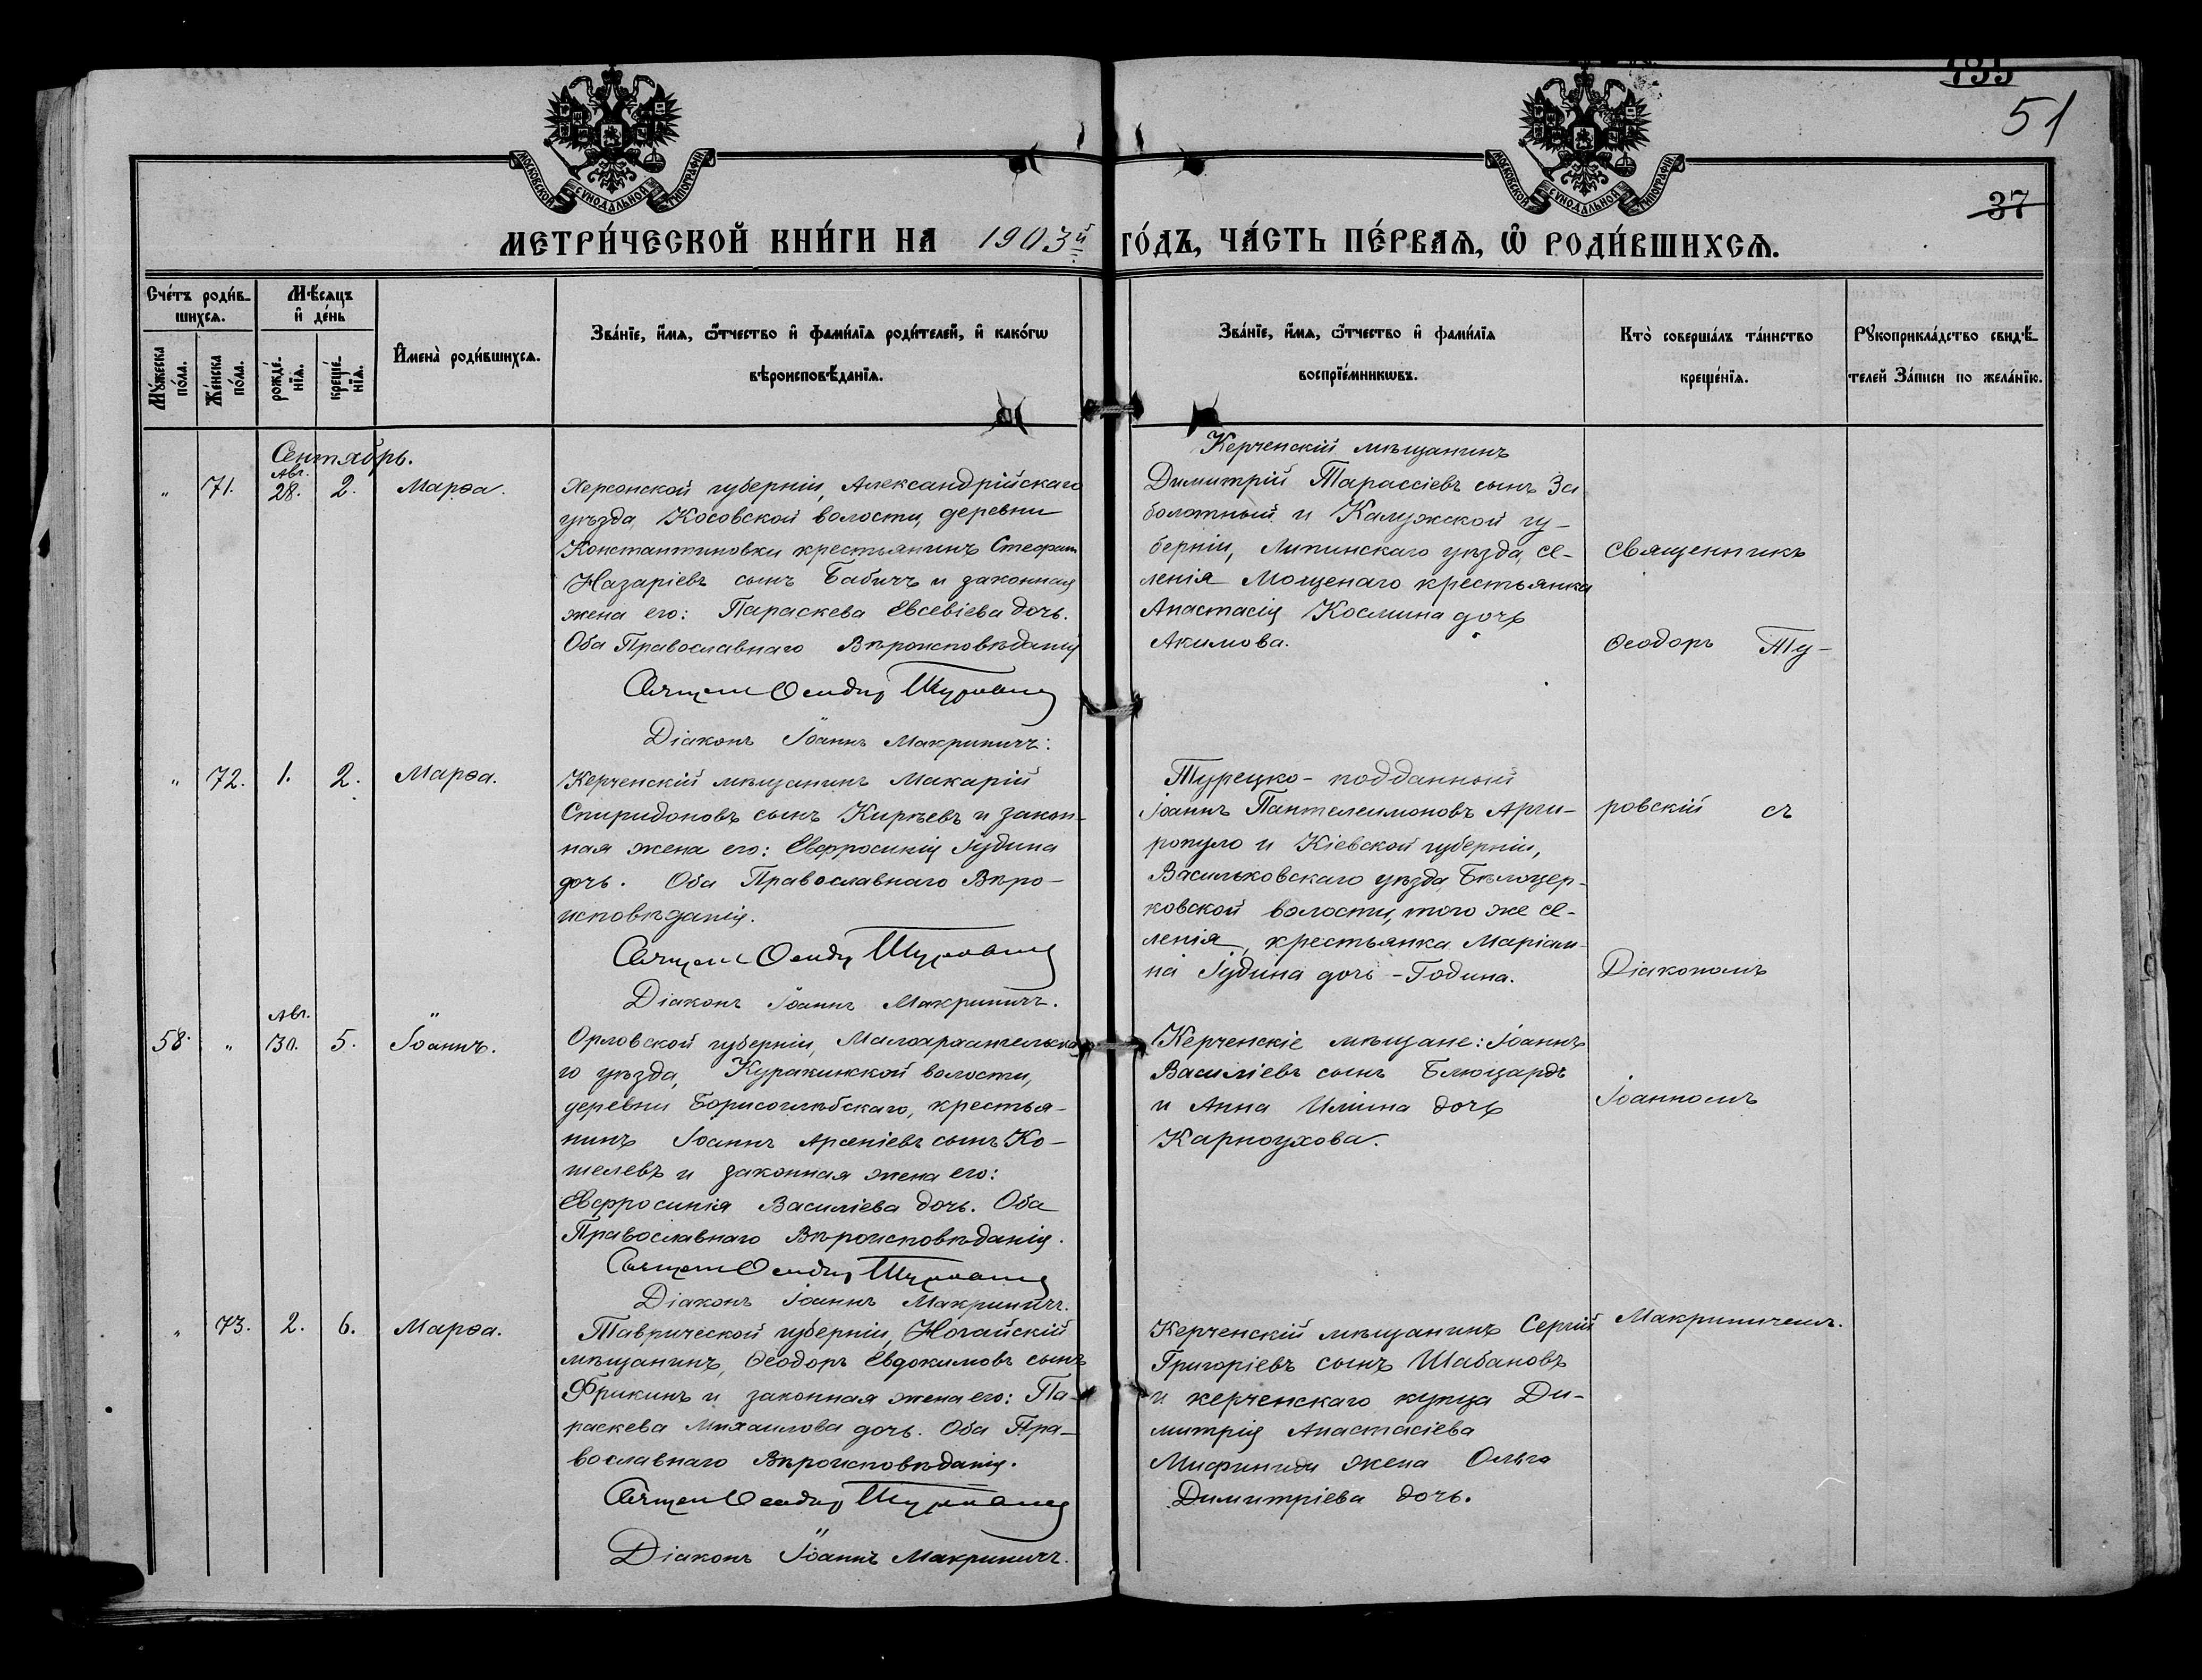 51
37
МОСКОВСКОЙ СѴНОДАЛЬНОЙ ТИПОГРАФІИ
МОСКОВСКОЙ СѴНОДАЛЬНОЙ ТИПОГРАФІИ
МЕТРИ́ЧЕСКОЙ КНИ́ГИ НА 1903й ГО́ДЪ, ЧА́СТЬ ПЕ́РВАѦ, Ѽ РОДИ́ВШИХСѦ.
Сче́тъ роди́в-
шихсѧ.
Мꙋ́жеска по́ла.
Же́нска по́ла.
Мѣ́сѧцъ
и҆ де́нь
рожде́-нїѧ.
креще́-нїѧ.
И҆мена̀ роди́вшихсѧ.
Зва́нїе, и҆́мѧ, ѻ҆́тчество и҆ фами́лїѧ роди́телей, и҆ како́гѡ
вѣроисповѣ́данїѧ.
Зва́нїе, и҆́мѧ, ѻ҆́тчество и҆ фами́лїѧ
воспрїе́мникѡвъ.
Кто̀ соверша́лъ та́инство
креще́нїѧ.
Рꙋкоприкла́дство свидѣ́-
телей За́писи по жела́нїю.
Сентябрь.
Авг.
" 71. 28. 2. Марѳа.
Херсонской губерніи, Александрійскаго
уѣзда, Косовской волости, деревни
Константиновки крестьянинъ Стефанъ
Назаріевъ сынъ Бабичъ и законная
жена его: Параскева Евсевіева дочь.
Оба Православнаго Вѣроисповѣданія
Священ Ѳеодоръ Туровскій
Діаконъ Іоаннъ Макриничъ:
Керченскій мѣщанинъ
Димитрій Тарассіевъ сынъ За
болотный и Калужской гу-
берніи, Липинскаго уѣзда, се-
ленія Мощенаго крестьянка
Анастасія Космина дочь
Акимова.
Священникъ
Ѳеодоръ Ту-
" 72. 1. 2. Марѳа.
Керченскій мѣщанинъ Макарій
Спиридоновъ сынъ Кирѣевъ и закон-
ная жена его: Евфросинія Іудина
дочь. Оба Православнаго Вѣро-
исповѣданія.
Священ Ѳеодоръ Туровскій
Діаконъ Іоаннъ Макриничъ.
Турецко-подданный
Іоаннъ Пантелеимоновъ Арги-
ропуло и Кіевской губерніи,
Васильковскаго уѣзда, Бѣлоцер-
ковской волости, того же се-
ленія, крестьянка Маріам-
на Іудина дочь - Година.
ровскій съ
Діакономъ
Авг.
58. " 30. 5. Іоаннъ.
Орловской губерніи, Малоархангельска
го уѣзда, Куракинской волости,
деревни Борисоглѣбскаго, крестья-
нинъ Іоаннъ Арсеніевъ сынъ Ко-
шелевъ и законная жена его:
Евфросинія Василіева дочь. Оба
Православнаго Вѣроисповѣданія.
Священ Ѳеодоръ Туровскій
Діаконъ Іоаннъ Макриничъ.
Керченскіе мѣщане: Іоаннъ
Василіевъ сынъ Блюцардъ
и Анна Иліина дочь
Карноухова.
Іоанномъ
" 73. 2. 6. Марѳа.
Таврической губерніи, Ногайскій
мѣщанинъ, Ѳеодоръ Евдокимовъ сынъ
Фрикинъ и законная жена его: Па-
раскева Михаилова дочь. Оба Пра-
вославнаго Вѣроисповѣданія.
Священ Ѳеодоръ Туровскій
Діаконъ Іоаннъ Макриничъ.
Керченскій мѣщанинъ Сергій
Григоріевъ сынъ Шабановъ
и керченскаго купца Ди-
митрія Анастасіева
Мифиниди жена Ольга
Димитріева дочь.
Макриничемъ.